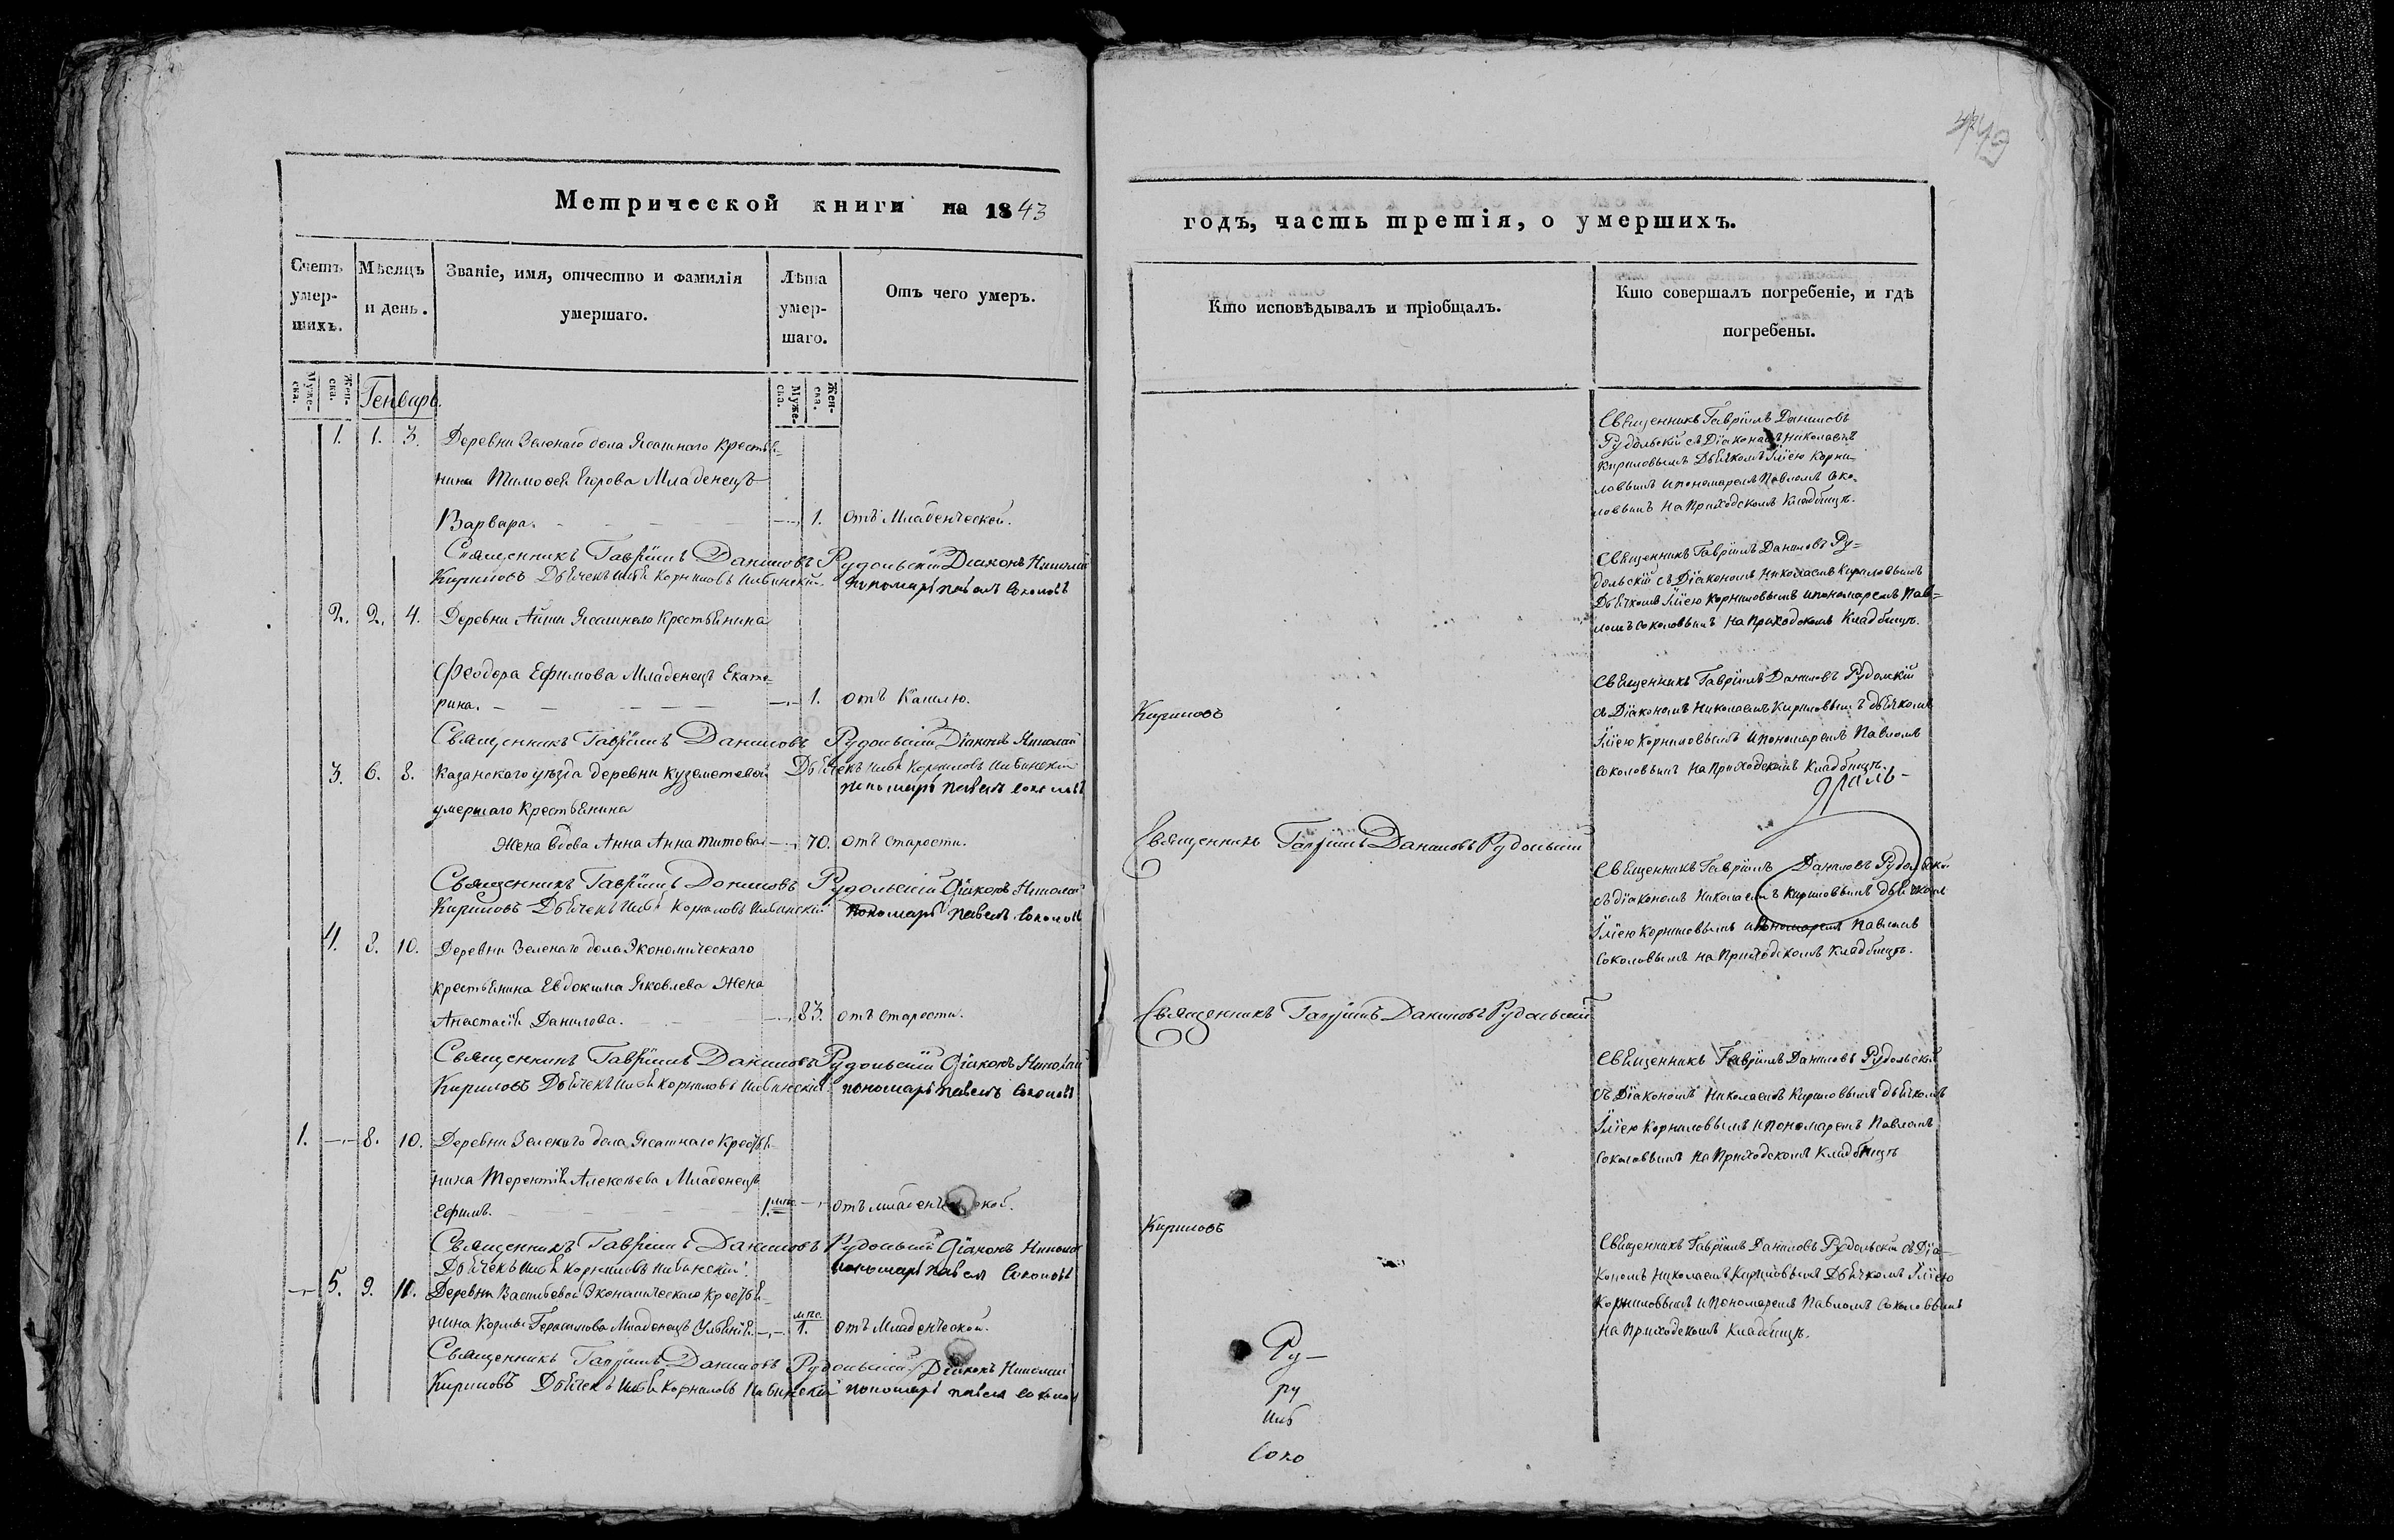 449
Метрической книги на 1843
Счетъ умершихъ.
Мѣсяцъ и день.
Званіе, имя, отчество и фамилія умершаго.
Лѣта умершаго.
Отъ чего умеръ.
Мужеска.
Женска.
Мужеска.
Женска.
Генварь.
1. 1. 3. Деревни Зеленаго дола Ясашнаго Крестья=
нина Тимофея Егорова Младенецъ
Варвара. 1. отъ Младенческой.
Священникъ Гавріилъ Даниловъ Рудольскій Діаконъ Николай
Кириловъ Дьячекъ Илья Корниловъ пономарь павелъ Соколовъ
2. 2. 4. Деревни Айши Ясашнаго Крестьянина
Феодора Ефимова Младенецъ Екате=
рина. 1. отъ Кашлю.
Священникъ Гавріилъ Даниловъ Рудольскій Діаконъ Николай
3. 6. 8. Казанскаго уѣзда деревни Куземетевой Дьячекъ Илья Корниловъ
пономарь павелъ Соколовъ
умершаго Крестьянина
Жена вдова Анна Анна Титова 70. отъ старости.
Священникъ Гавріилъ Даниловъ Рудольскій Діаконъ Николай
Кириловъ Дьячекъ Илья Корниловъ пономарь павелъ Соколовъ
4. 8. 10. Деревни Зеленаго дола Экономическаго
крестьянина Евдокима Яковлева Жена
Анастасія Данилова. 83. отъ старости.
Священникъ Гавріилъ Даниловъ Рудольскій Діаконъ Николай
Кириловъ Дьячекъ Илья Корниловъ пономарь павелъ Соколовъ
1. 8. 10. Деревни Зеленаго дола Ясашнаго Крестья=
нина Терентія Алексѣева Младенецъ
Ефимъ. 1. мѣс. отъ младенческой.
Священникъ Гавріилъ Даниловъ Рудольскій Діаконъ Николай
Дьячекъ Илья Корниловъ пономарь павелъ Соколовъ
5. 9. 11. Деревни Васильевой Экономическаго Крестья=
нина Козмы Герасимова Младенецъ Уліянія мѣс. 1. отъ Младенческой.
Священникъ Гавріилъ Даниловъ Рудольскій Діаконъ Николай
Кириловъ Дьячекъ Илья Корниловъ пономарь павелъ Соколовъ
годъ, часть третія, о умершихъ.
Кто исповѣдывалъ и пріобщалъ.
Кто совершалъ погребеніе, и гдѣ погребены.
Священникъ Гавріилъ Даниловъ
Рудольскій съ Діакономъ Николаемъ
Кириловымъ Дьячкомъ Иліею Корни=
ловымъ и пономаремъ Павломъ Соко=
ловымъ на Приходскомъ Кладбищѣ.
Священникъ Гавріилъ Даниловъ Ру=
дольскій съ Діакономъ Николаемъ Кириловымъ
Дьячкомъ Иліею Корниловымъ и пономаремъ Пав=
ломъ Соколовымъ на Приходскомъ Кладбищѣ.
Кириловъ
Священникъ Гавріилъ Даниловъ Рудолскій
съ Діакономъ Николаемъ Кириловымъ дьячкомъ
Иліею Корниловымъ и пономаремъ Павломъ
Соколовымъ на Приходскомъ Кладбищѣ.
Священникъ Гавріилъ Даниловъ Рудольскій
Священникъ Гавріилъ Даниловъ Рудольскій
съ діакономъ Николаемъ Кириловымъ дьячкомъ
Иліею Корниловымъ и пономаремъ Павломъ
Соколовымъ на Приходскомъ Кладбищѣ.
Священникъ Гавріилъ Даниловъ Рудольскій
Священникъ Гавріилъ Даниловъ Рудольскій
съ Діакономъ Николаемъ Кириловымъ дьячкомъ
Иліею Корниловымъ и Пономаремъ Павломъ
Соколовымъ на Приходскомъ Кладбищѣ
Кириловъ
Священникъ Гавріилъ Даниловъ Рудольскій съ Діа=
кономъ Николаемъ Кириловымъ Дьячкомъ Иліею
Корниловымъ и Пономаремъ Павломъ Соколовымъ
на Приходскомъ Кладбищѣ.
Ру—
ру
Илб
Соко